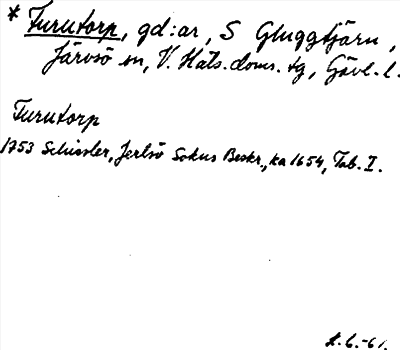 * Furutorp, gd:ar, S Gluggtjärn,
Järvsö sn, V. Häls. doms. tg, Gävl. l.
Furutorp
1753 Schissler, Jerlsö Sokns Beskr., ka 1654, Tab. I.